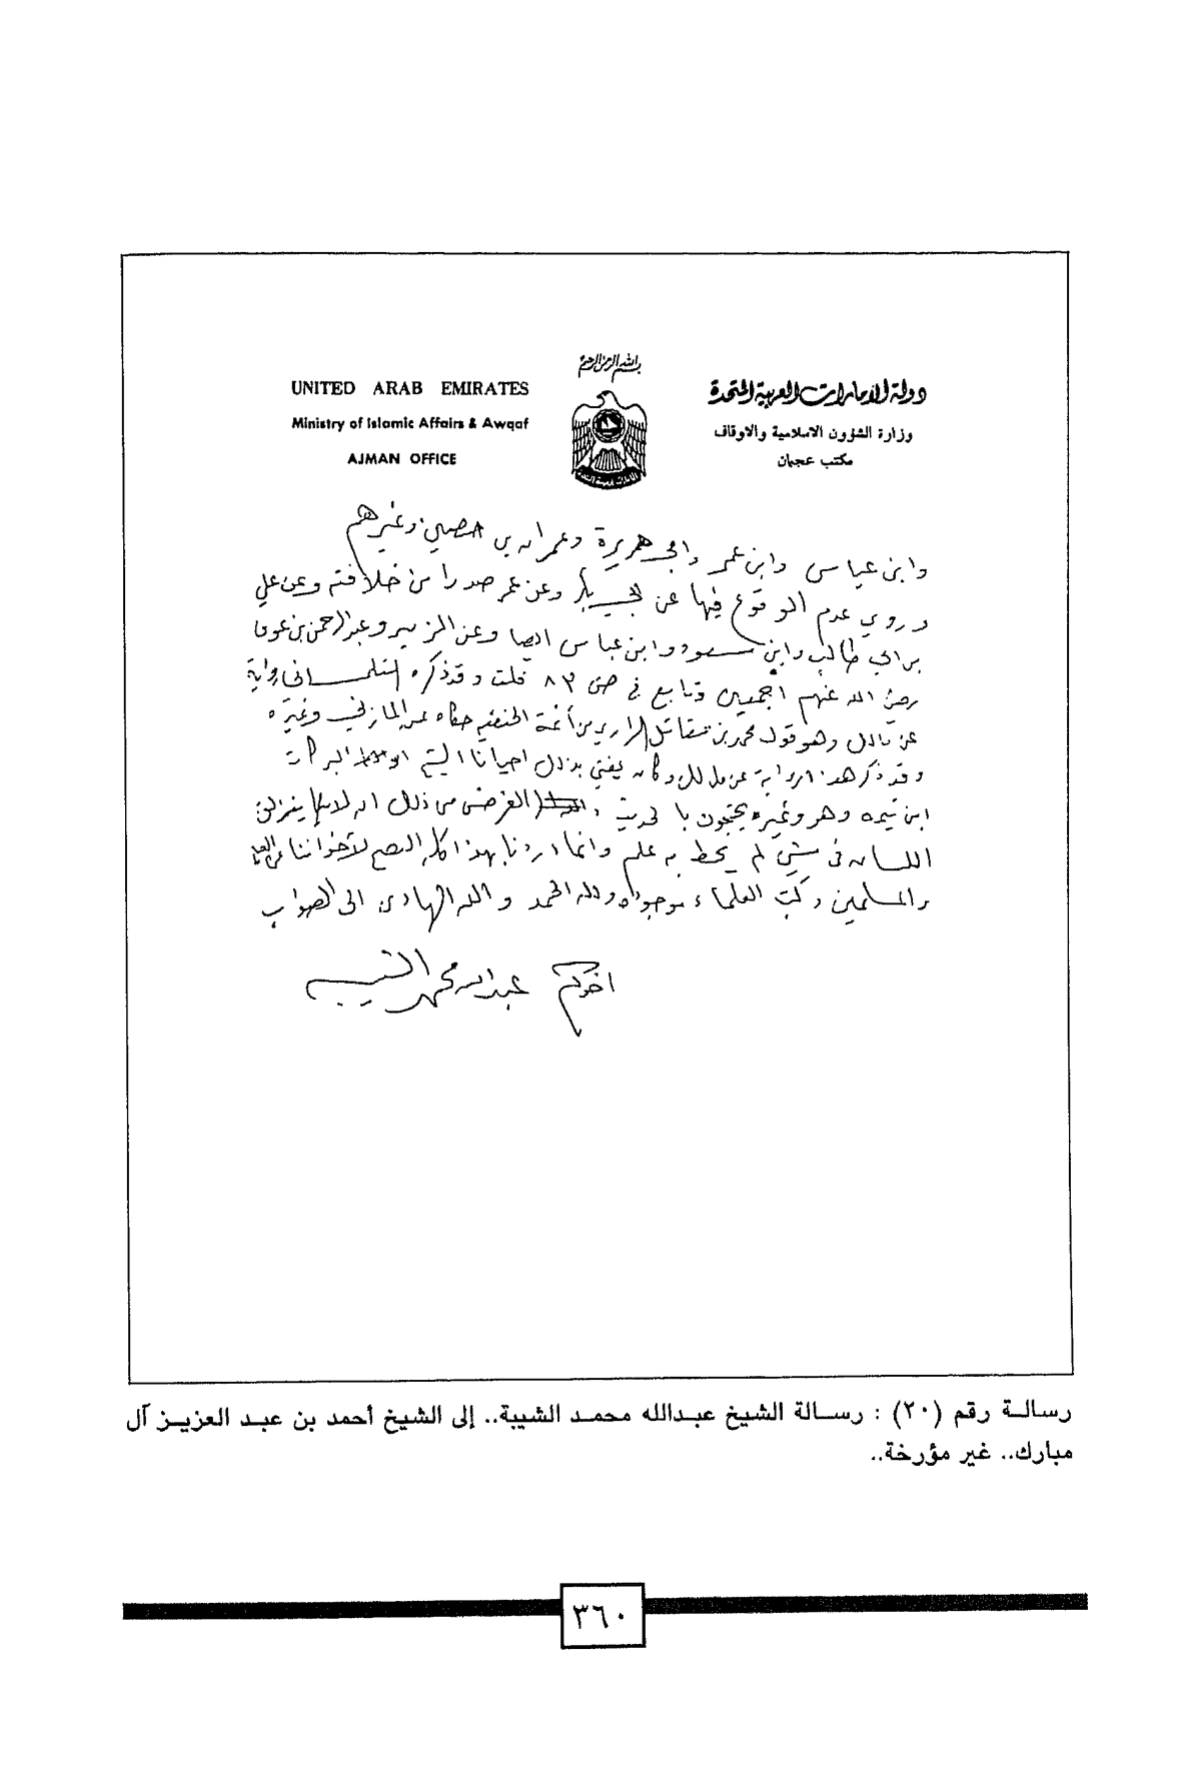 بسم الله الرحمن الرحيم
UNITED ARAB EMIRATES
Ministry of Islamic Affairs & Awqaf
AJMAN OFFICE
دولة الامارات العربية المتحدة
وزارة الشؤون الاسلامية والاوقاف
مكتب عجمان
وابن عباس وابن عمر وابي هريرة وعمران بن حصين وغيرهم
وروي عدم الوقوع فيها عن ابي بكر وعن عمر صدرا من خلافته وعن علي
بن ابي طالب وابن مسعود وابن عباس ايضا وعن الزبير وعبد الرحمن بن عوف
رضي الله عنهم اجمعين وتابع في ص ٨٣ قلت وقد ذكره التلمساني رواية
عن مالك وهو قول محمد بن مقاتل الرازي من أئمة الحنفية حكاه عن المازني وغيره
وقد ذكر هذه الرواية عن مالك وكان يفتي بذلك احيانا الشيخ ابو البركات
ابن تيمية وهو وغيره يحتجون بالحديث الغرض من ذلك ان لا ينزلق
اللسان في شيء لم يحط به علم وانما اردنا بهذا كله النصح لاخواننا من
والمسلمين وكتب العلماء موجوده ولله الحمد والله الهادي الى الصواب
اخوكم عبدالله محمد الشيبه
رسالة رقم (٢٠) : رسالة الشيخ عبدالله محمد الشيبة.. إلى الشيخ أحمد بن عبد العزيز آل
مبارك.. غير مؤرخة..
٣٦٠